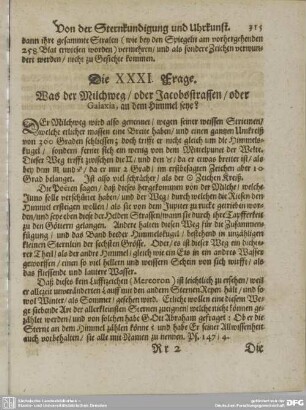 Von der Sternkündigung und Uhrkunst. 315
dann ihre gesammte Stralen ( wie bey den Spiegeln am vorhergehenden
258. Blat erwiesen worden) vermehren/ und als sondere Zeichen verwun-
dert werden / nicht zu Gesichte kommen.
Die XXXI Frage.
Was der Milchweg / oder Jacobsstrassen / oder
Galaxia, an dem Himmel seye?
DEr Milchweg wird also genennet / wegen seiner weissen
welche etlicher massen eine Breite haben / und einen gantzen Umkreiß
von 360 Graden schliessen; doch trifft er nicht gleich um die Himmels-
kugel / sondern ferne sich ein wenig von dem Mittelpunct der Welte.
Dieser Weg trifft zwischen die ♊ / und den ♐ / da er etwas breiter ist / als
bey dem ♏ und / da er nur 2 Grad / im Zeichen aber 10
Grad belanget. Ist also viel / als der ☉ Zeichen Kreiß.
Die Poëten sagen / daß dieses hergekommen von der Milche / welche
Juno solle verschüttet haben / und der Weg / durch welchen die Riesen den
Himmel ersteigen wollen / als sie von dem Jupiter zurück getrieben wor-
den / und seye eben diese der Helden Strassen / wann sie durch ihre Tapfferkeit
zu den Göttern gelangen. Andere halten diesen Weg für die Zusammen-
fügung / und das Band beeder Himmelskugel / bestehend in unzähligen
kleinen Sternlein der sechsten Grösse. Oder / es ist dieser Weg ein
Theil / als der andre Himmel / gleich wie ein in ein andres Wasser
geworffen / einen so viel hellern und weissern Schein von sich wirfft / als
das fliessende und lautre Wasser.
Daß dieses kein Lufftzeichen ( ) ist leichtlich zu ersehen / weil
er allezeit unveränderten Lauff mit den andern Sternen Repen hält / und so
wol Winter / als Sommer / gesehen wird. Etliche wollen eine diesem We-
ge stehende Art der allerkleinsten Sternen zueignen / welche nicht können ge-
zählet werden / und von solchen habe GOtt Abraham gefraget : Ob er die
Sterne an dem Himmel zählen könne ? und habe Er seiner Allwissenheit
auch vorbehalten / sie alle mit Namen zu nennen. Ps. 147 / 4.
Rr 2 Die